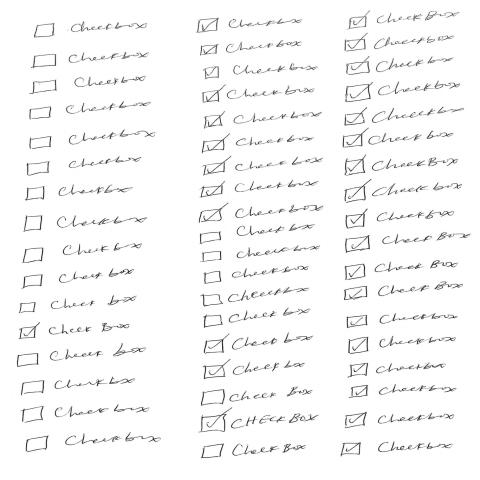 Checkbox
Checkbox
Checkbox
Checkbox
Checkbox
Checkbox
Checkbox
Checkbox
Check box
Check box
Check box
Check Box
Check box
Check box
Check box
Checkbox
Checkbox
Checkbox
Checkbox
Checkbox
Checkbox
Check box
Check box
Check box
Checkbox
Check box
Checkbox
Checkbox
Checkbox
Check box
Check box
Check bx
Check Box
CHECK BOX
Check Box
Check Box
Checkbox
Checkbox
Checkbox
Checkbox
Check box
Check Box
Check box
Checkbox
Check Box
Check Box
Check Box
Checkbox
Checkbox
Checkbox
Checkbox
Checkbox
Checkbox